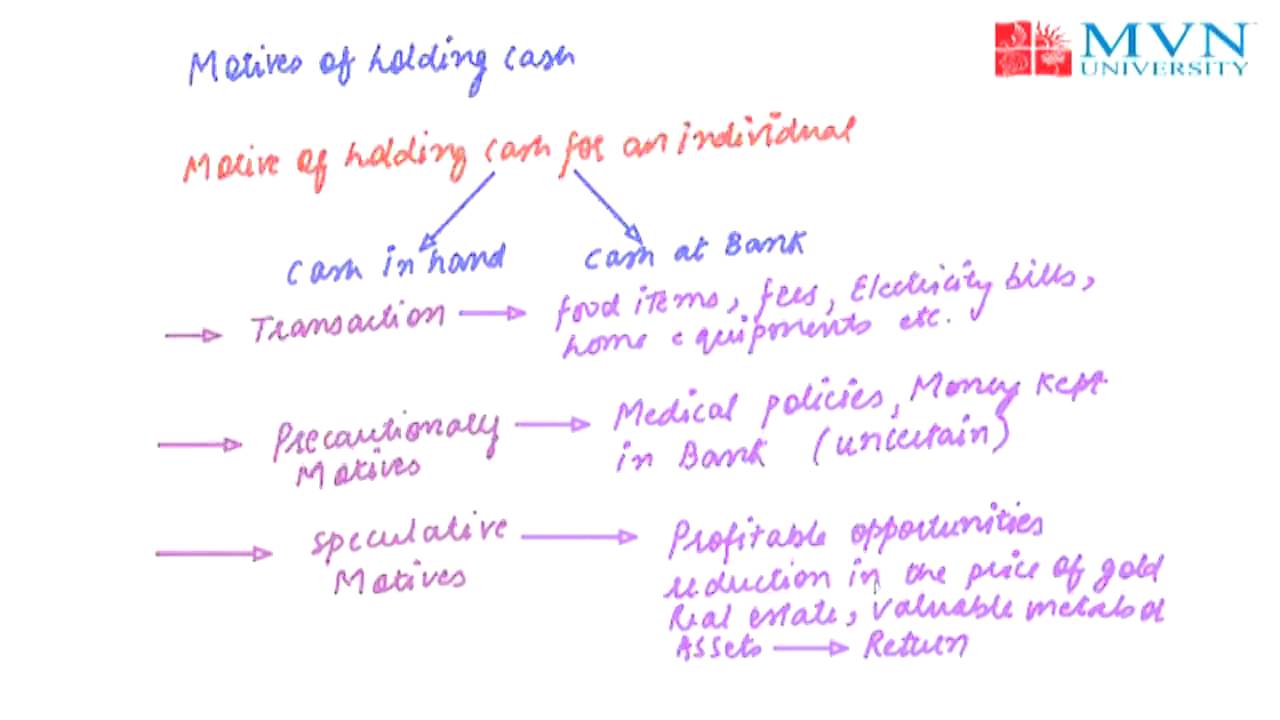 MVN
UNIVERSITY
Motives of holding cash
Motive of holding cash for an individual
Cash in hand
Cash at Bank
Transaction
food items, fees, Electricity bills,
home equipments etc.
Precautionary
Motives
Medical policies, Money kept
in Bank (uncertain)
Speculative
Motives
Profitable opportunities
reduction in the price of gold
Real estate, valuable metals
Assets → Return